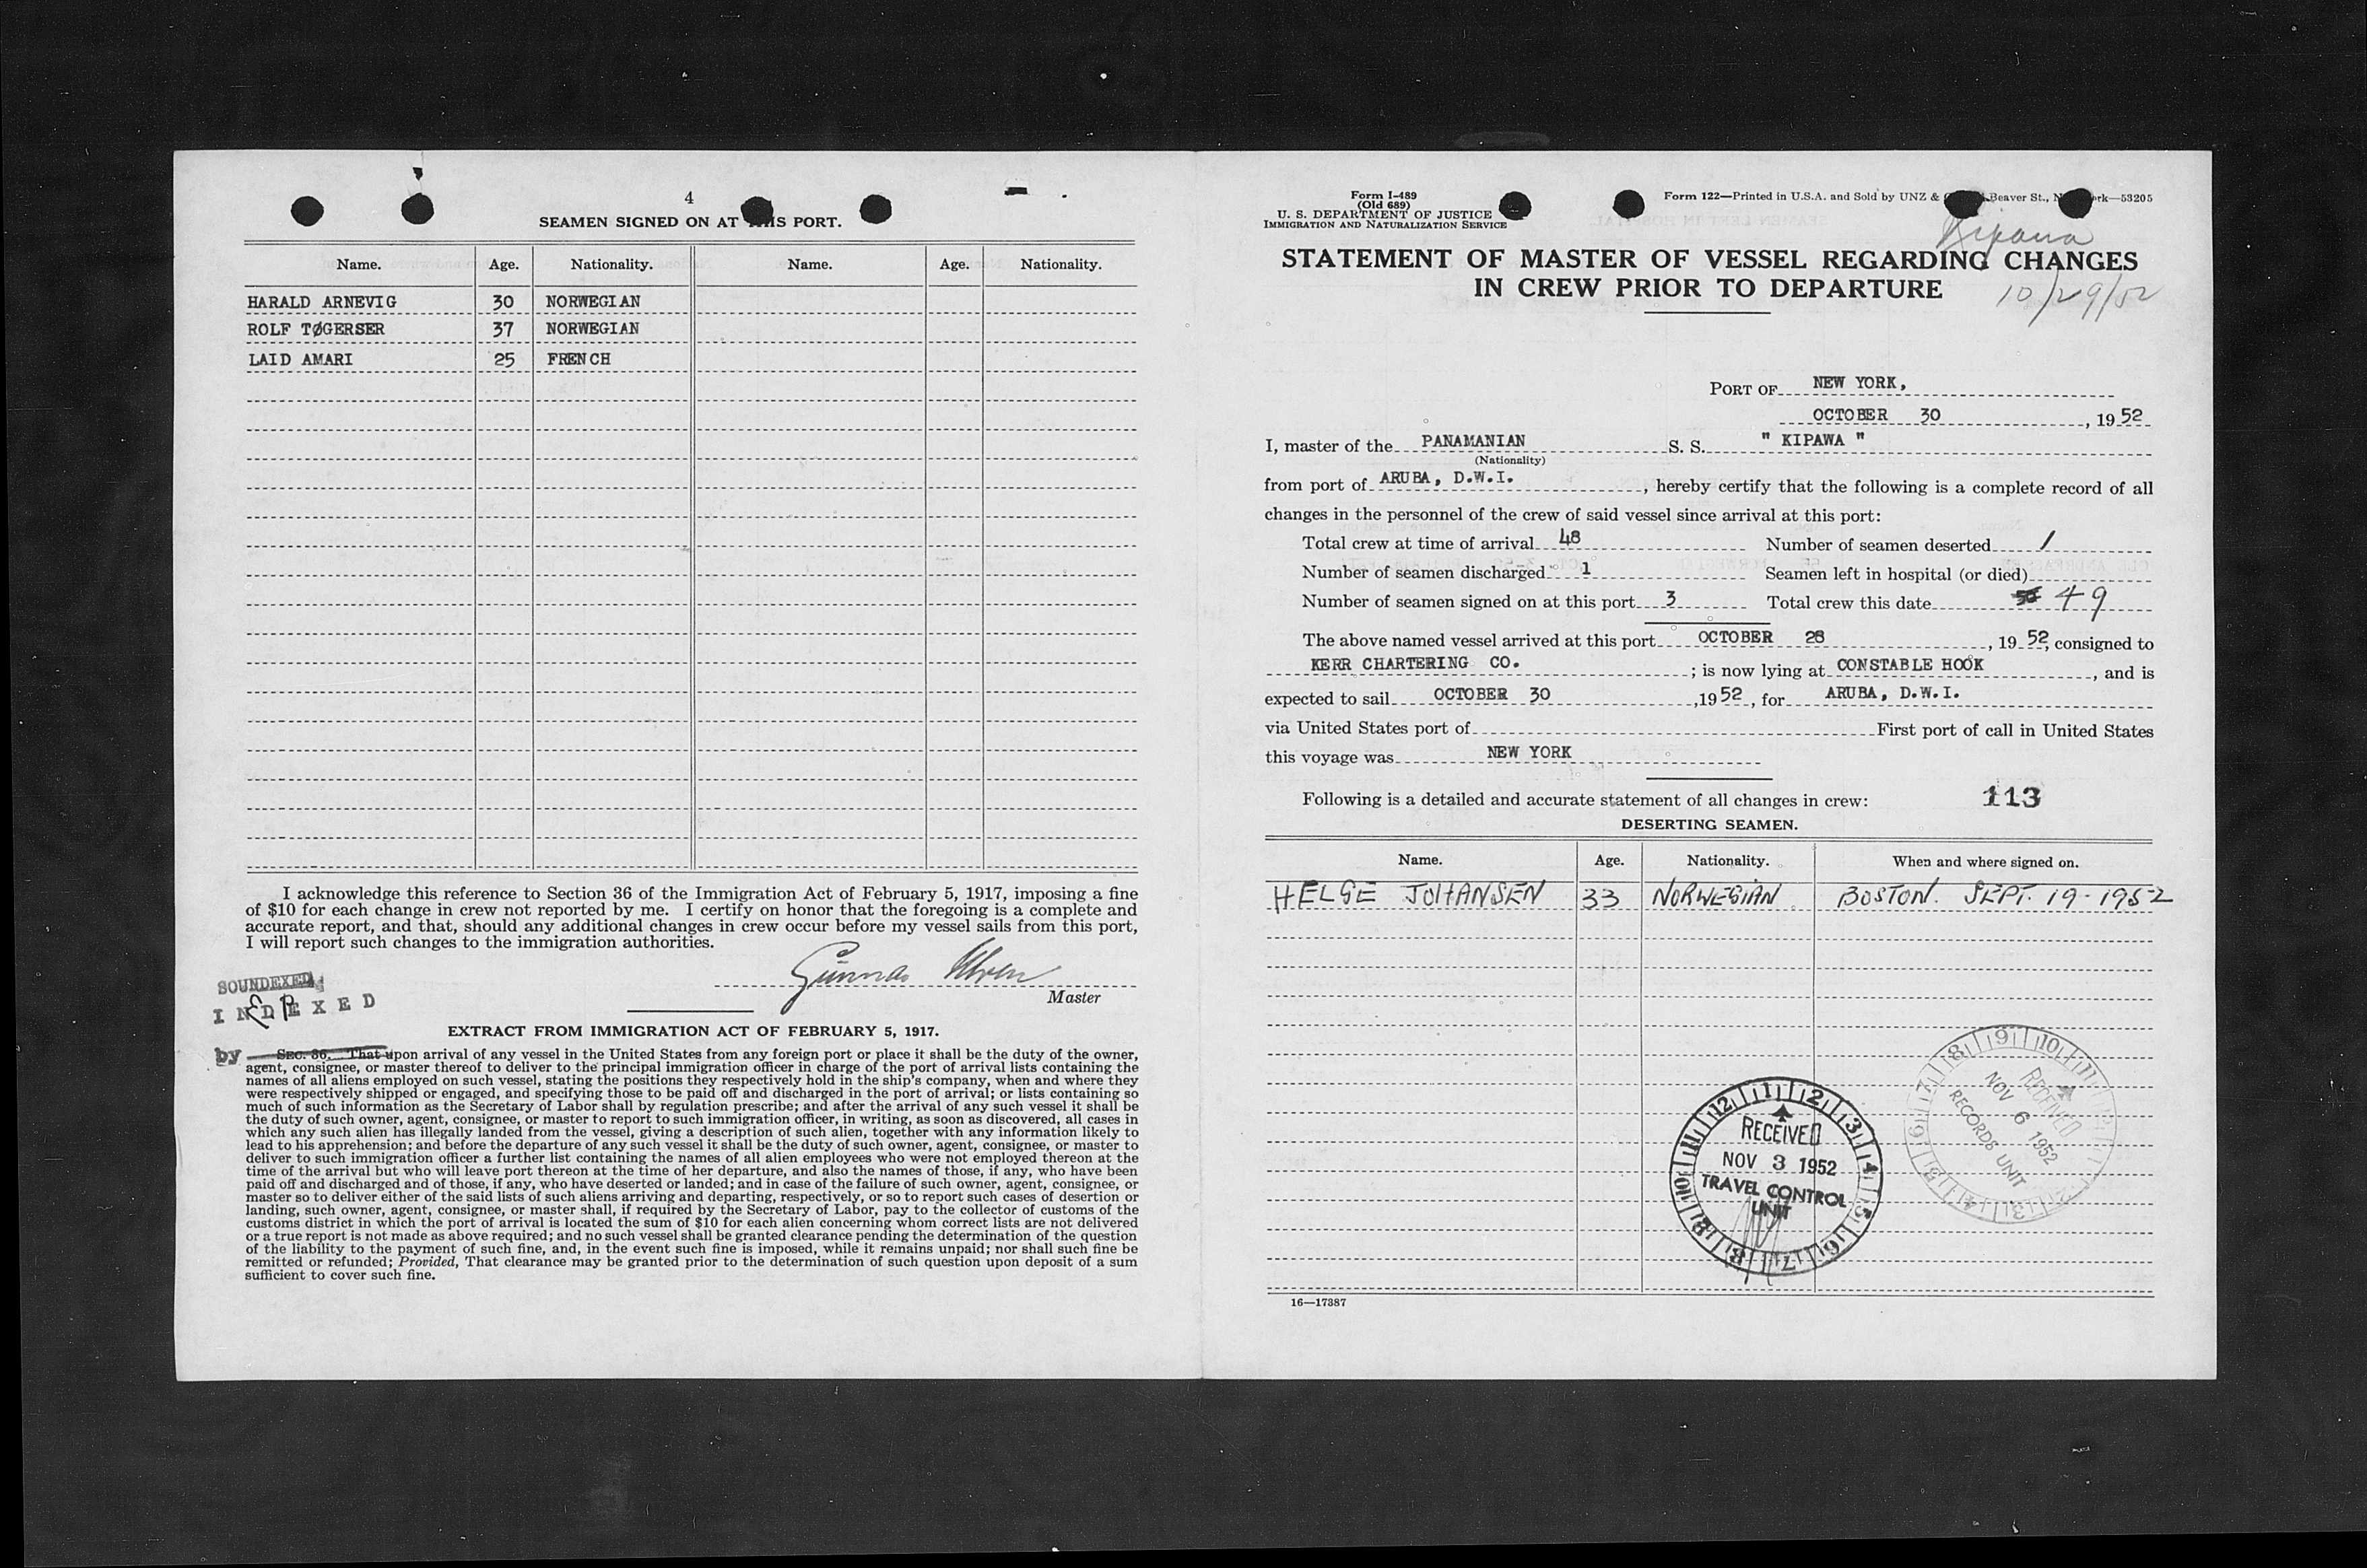 4
SEAMEN SIGNED ON AT THIS PORT.
Name. Age. Nationality. Name. Age. Nationality.
HARALD ARNEVIG 30 NORWEGIAN
ROLF TØGERSER 37 NORWEGIAN
LAID AMARI 25 FRENCH
I acknowledge this reference to Section 36 of the Immigration Act of February 5, 1917, imposing a fine
of $10 for each change in crew not reported by me. I certify on honor that the foregoing is a complete and
accurate report, and that, should any additional changes in crew occur before my vessel sails from this port,
I will report such changes to the immigration authorities.
Gunnar
Master
SOUNDEXED
INDEXED
by
EXTRACT FROM IMMIGRATION ACT OF FEBRUARY 5, 1917.
SEC. 36. That upon arrival of any vessel in the United States from any foreign port or place it shall be the duty of the owner,
agent, consignee, or master thereof to deliver to the principal immigration officer in charge of the port of arrival lists containing the
names of all aliens employed on such vessel, stating the positions they respectively hold in the ship's company, when and where they
were respectively shipped or engaged, and specifying those to be paid off and discharged in the port of arrival; or lists containing so
much of such information as the Secretary of Labor shall by regulation prescribe; and after the arrival of any such vessel it shall be
the duty of such owner, agent, consignee, or master to report to such immigration officer, in writing, as soon as discovered, all cases in
which any such alien has illegally landed from the vessel, giving a description of such alien, together with any information likely to
lead to his apprehension; and before the departure of any such vessel it shall be the duty of such owner, agent, consignee, or master to
deliver to such immigration officer a further list containing the names of all alien employees who were not employed thereon at the
time of the arrival but who will leave port thereon at the time of her departure, and also the names of those, if any, who have been
paid off and discharged and of those, if any, who have deserted or landed; and in case of the failure of such owner, agent, consignee, or
master so to deliver either of the said lists of such aliens arriving and departing, respectively, or so to report such cases of desertion or
landing, such owner, agent, consignee, or master shall, if required by the Secretary of Labor, pay to the collector of customs of the
customs district in which the port of arrival is located the sum of $10 for each alien concerning whom correct lists are not delivered
or a true report is not made as above required; and no such vessel shall be granted clearance pending the determination of the question
of the liability to the payment of such fine, and, in the event such fine is imposed, while it remains unpaid; nor shall such fine be
remitted or refunded; Provided, That clearance may be granted prior to the determination of such question upon deposit of a sum
sufficient to cover such fine.
Form I-489
(Old 689)
U. S. DEPARTMENT OF JUSTICE
IMMIGRATION AND NATURALIZATION SERVICE
Form 122—Printed in U.S.A. and Sold by UNZ & Beaver St., 53205
Kipawa
STATEMENT OF MASTER OF VESSEL REGARDING CHANGES
IN CREW PRIOR TO DEPARTURE
10/29/52
PORT OF NEW YORK,
OCTOBER 30, 1952
I, master of the PANAMANIAN S. S. " KIPAWA "
(Nationality)
from port of ARUBA, D.W.I., hereby certify that the following is a complete record of all
changes in the personnel of the crew of said vessel since arrival at this port:
Total crew at time of arrival 48 Number of seamen deserted 1
Number of seamen discharged 1 Seamen left in hospital (or died)
Number of seamen signed on at this port 3 Total crew this date 50 49
The above named vessel arrived at this port OCTOBER 28, 1952, consigned to
KERR CHARTERING CO.; is now lying at CONSTABLE HOOK, and is
expected to sail OCTOBER 30, 1952, for ARUBA, D.W.I.
via United States port of First port of call in United States
this voyage was NEW YORK
Following is a detailed and accurate statement of all changes in crew: 113
DESERTING SEAMEN.
Name. Age. Nationality. When and where signed on.
HELGE JOHANSEN 33 NORWEGIAN BOSTON. SEPT. 19-1952
1 2 3 4 5 6 7 8 9 10 11 12
RECEIVED
NOV 3 1952
TRAVEL CONTROL
UNIT
RECEIVED
NOV 6 1952
RECORDS UNIT
16—17387